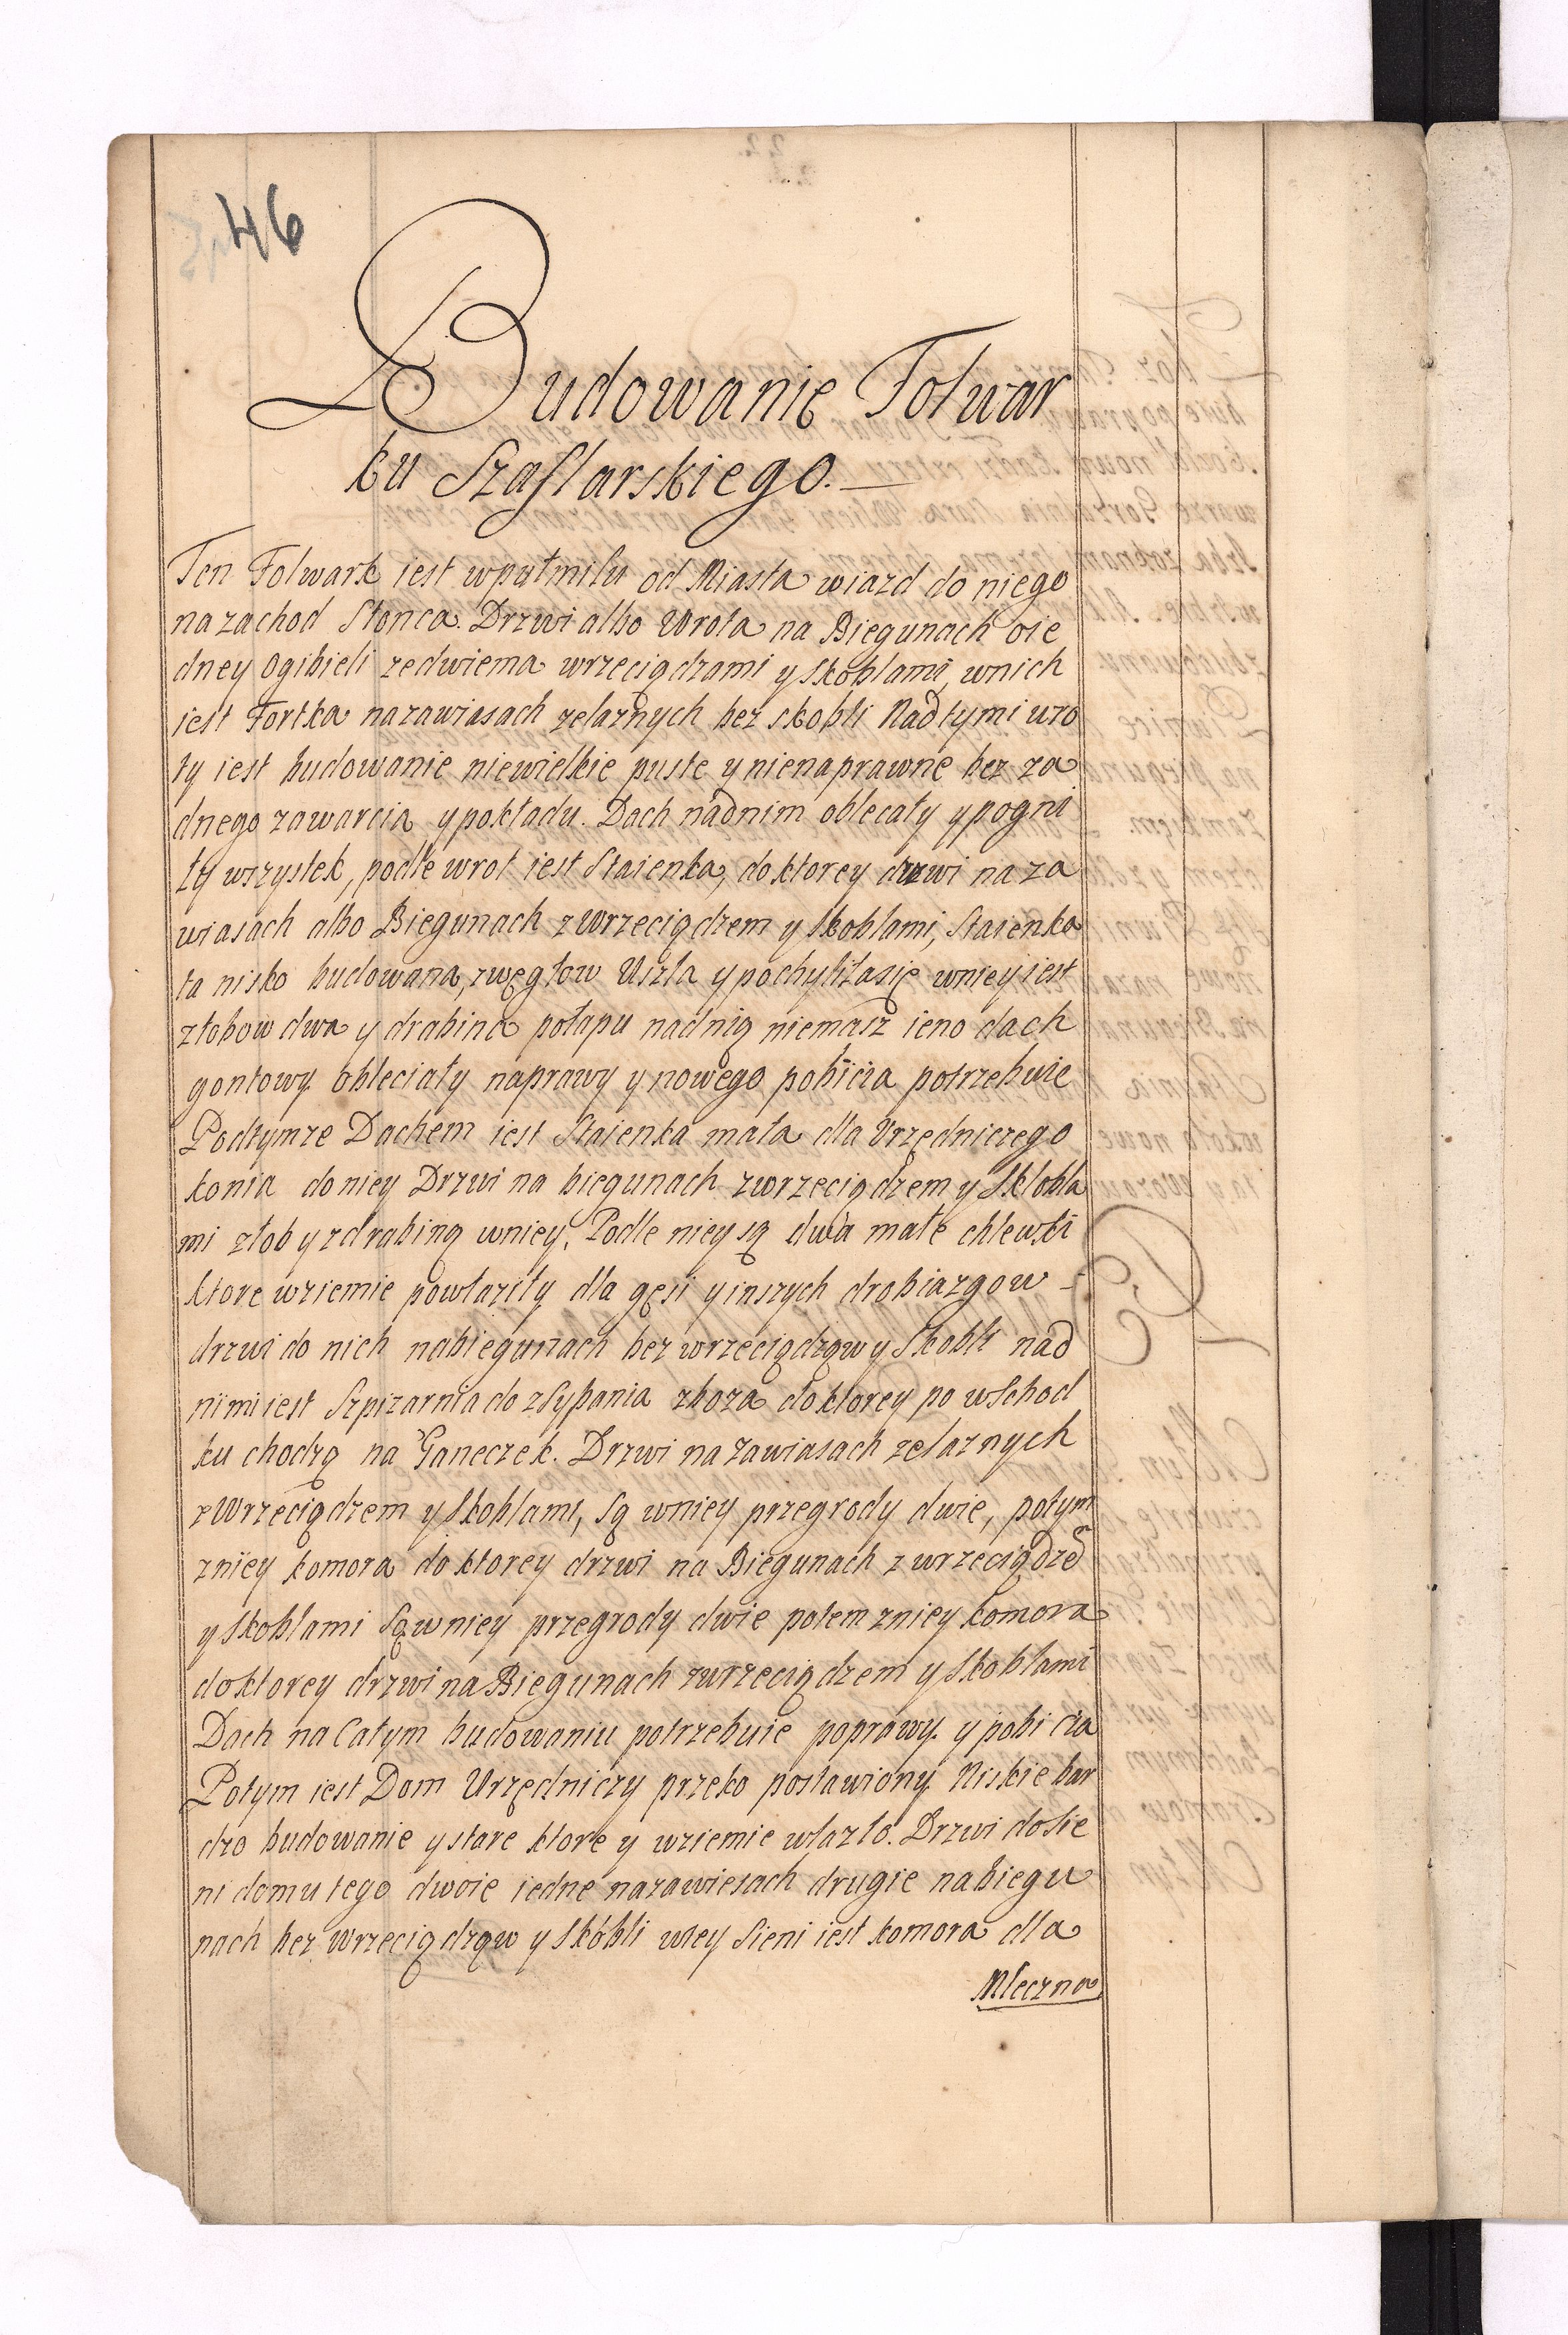 46
Budowanie Folwar
ku Szaflarskiego.
Ten Folwark iest wpułmilu od Miasta wiazd do niego
na zachod Słonca. Drzwi albo Wrota na Biegunach oie
dney Ogibieli zedwiema wrzeciądzami y skoblami, wnich
iest Fortka nazawiasach zelaznych bez skobli Nad tymi wro
ty iest budowanie niewielkie puste y nienaprawne bez za
dnego zawarcia y pokładu. Dach nadnim oblecały y pogni
ły wszystek, podle wrot iest Staienka, do ktorey drzwi na za
wiasach albo Biegunach z Wrzeciądzem y skoblami, Staienka
ta nisko budowana, zwęgłow Uszla y pochyliłasię wniey iest
złobow dwa y drabina połapu nadnią niemasz ieno dach
gontowy obleciały naprawy y nowego pobicia potrzebuie
Podtymze Dachem iest Staienka mała dla Urzędniczego
konia do niey Drzwi na biegunach zwrzeciądzem y Sklobla
mi złob y zdrabiną wniey, Podle niey są dwa małe chlewki
ktore wziemie powłaziły dla gęsi y inszych drobiazgow -
drzwi do nich nabiegunach bez wrzeciądząw y Skobli nad
nimi iest Szpizarnia do zsypania zboza do ktorey po wschod
ku chodzą na Ganeczek. Drzwi na zawiasach zelaznych
z Wrzeciądzem y Skoblami, Są wniey przegrody dwie, potym
zniey komora do ktorey drzwi na Biegunach z wrzeciądzẽ
y skoblami Są wniey przegrody dwie potem zniey komora
do ktorey drzwi na Biegunach zwrzeciądzem y Skoblami
Dach na Całym budowaniu potrzebuie poprawy y pobicia
Potym iest Dom Urzędniczy przeko postawiony Niskie bar
dzo budowanie y stare ktore y wziemie wlazło. Drzwi do sie
ni domu tego dwoie iedne nazawiesach drugie nabiegu
nach bez Wrzeciądząw y Skóbli wtey Sieni iest komora dla
Mleczna